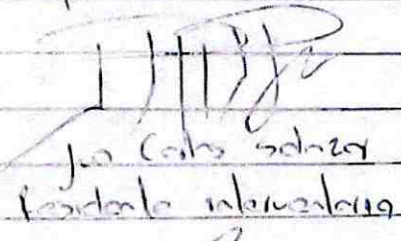 Juan Carlos Salazar
Residente interventoria